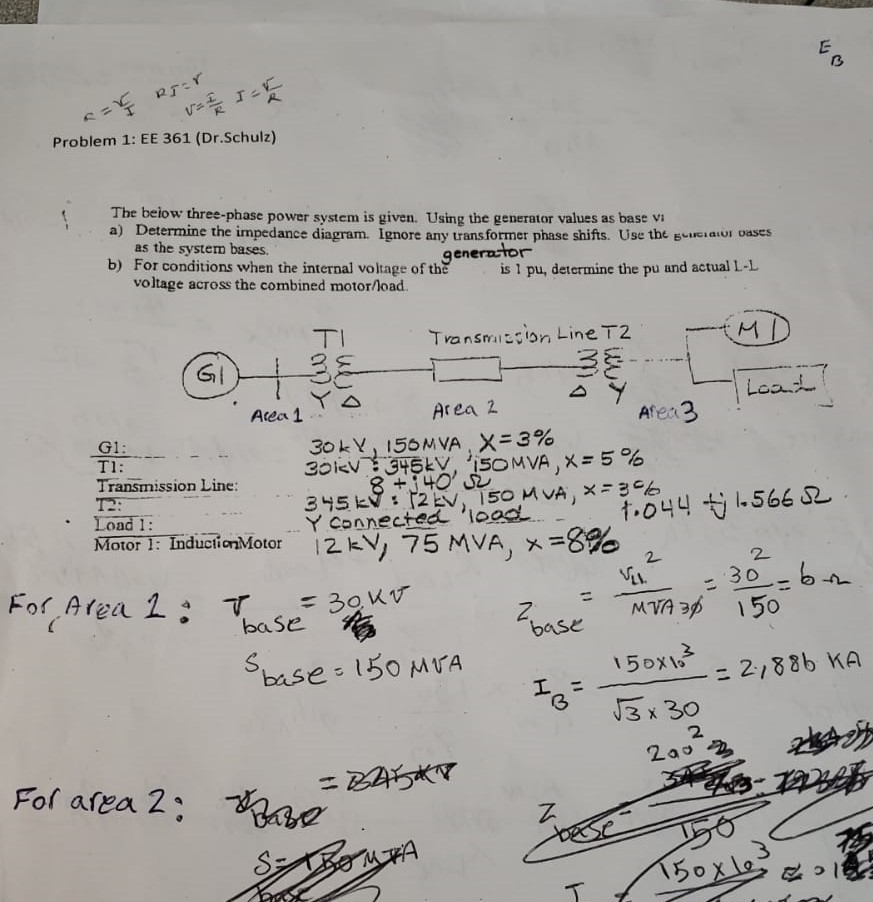 E
B
R = V/I  RI = V  V = I/R  I = V/R
Problem 1: EE 361 (Dr.Schulz)
The below three-phase power system is given. Using the generator values as base v
a) Determine the impedance diagram. Ignore any transformer phase shifts. Use the generator bases
as the system bases.
generator
b) For conditions when the internal voltage of the is 1 pu, determine the pu and actual L-L
voltage across the combined motor/load.
T1 Transmission Line T2
M1
G1
Load
Y Δ Δ Y
Area 1 Area 2 Area 3
G1: 30kV, 150MVA, X=3%
T1: 30kV : 345kV, 150MVA, X=5%
Transmission Line: 8+j40 Ω
T2: 345kV : 12kV, 150MVA, X=3%
Load 1: Y connected load 1.044 + j1.566 Ω
Motor 1: Induction Motor 12kV, 75 MVA, X=8%
For Area 1: V base = 30 KV Z base = V LL² / MVA 3φ = 30² / 150 = 6 Ω
S base = 150 MVA I B = 150x10³ / √3 x 30 = 2,886 KA
For area 2: V base = 345KV Z base = 200² / 150
S base = 150 MVA 150x10³
I